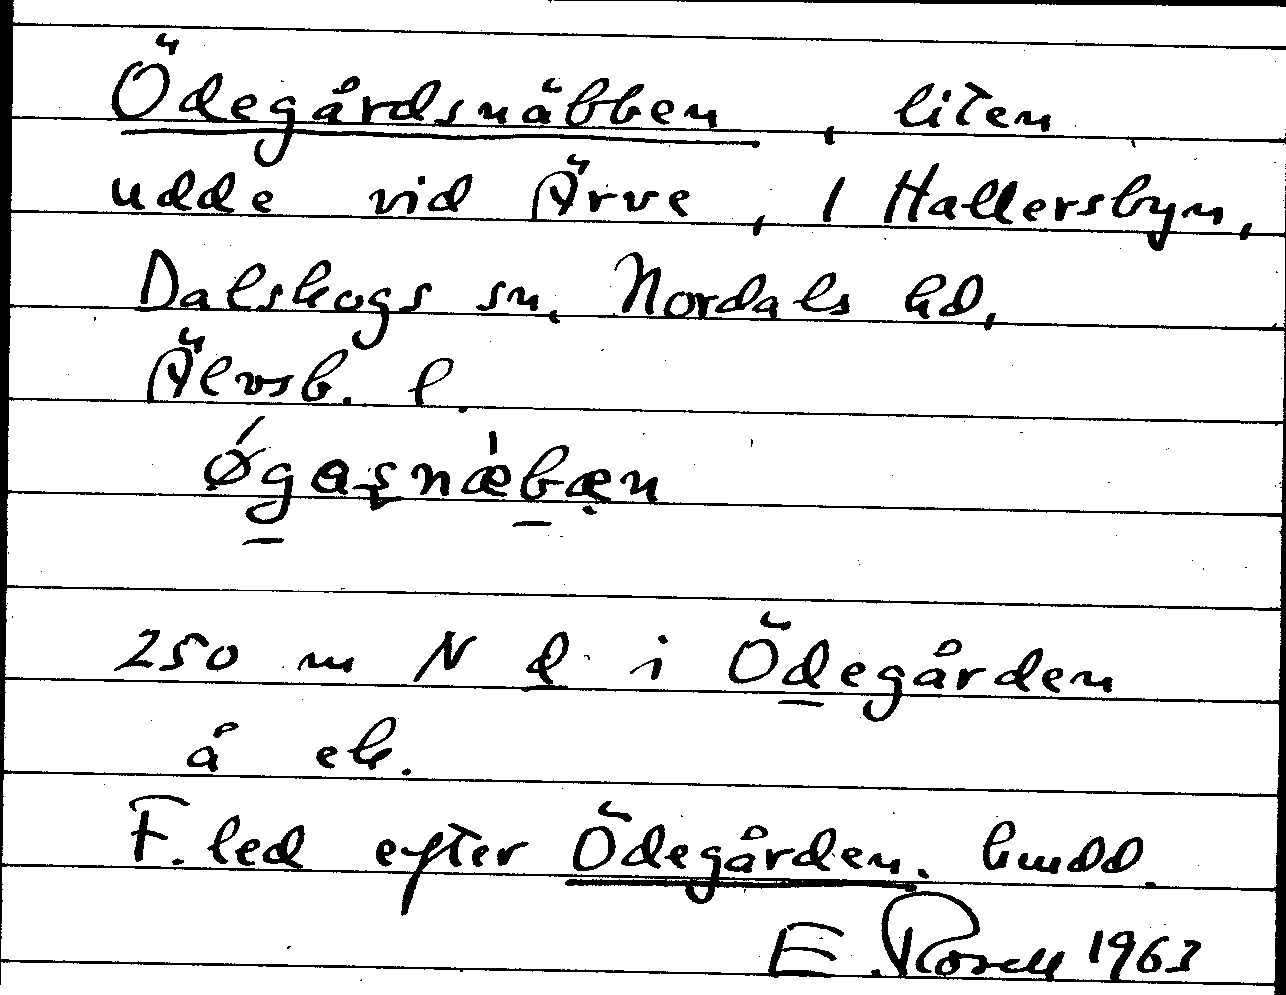 Ödegårdsnäbben, liten
udde vid Ärve, 1 Hallersbyn,
Dalskogs sn, Nordals hd,
Älvsb. l.
250 m N d i Ödegården
å ek.
F. led efter Ödegården. bmdd.
E. Rosell 1963